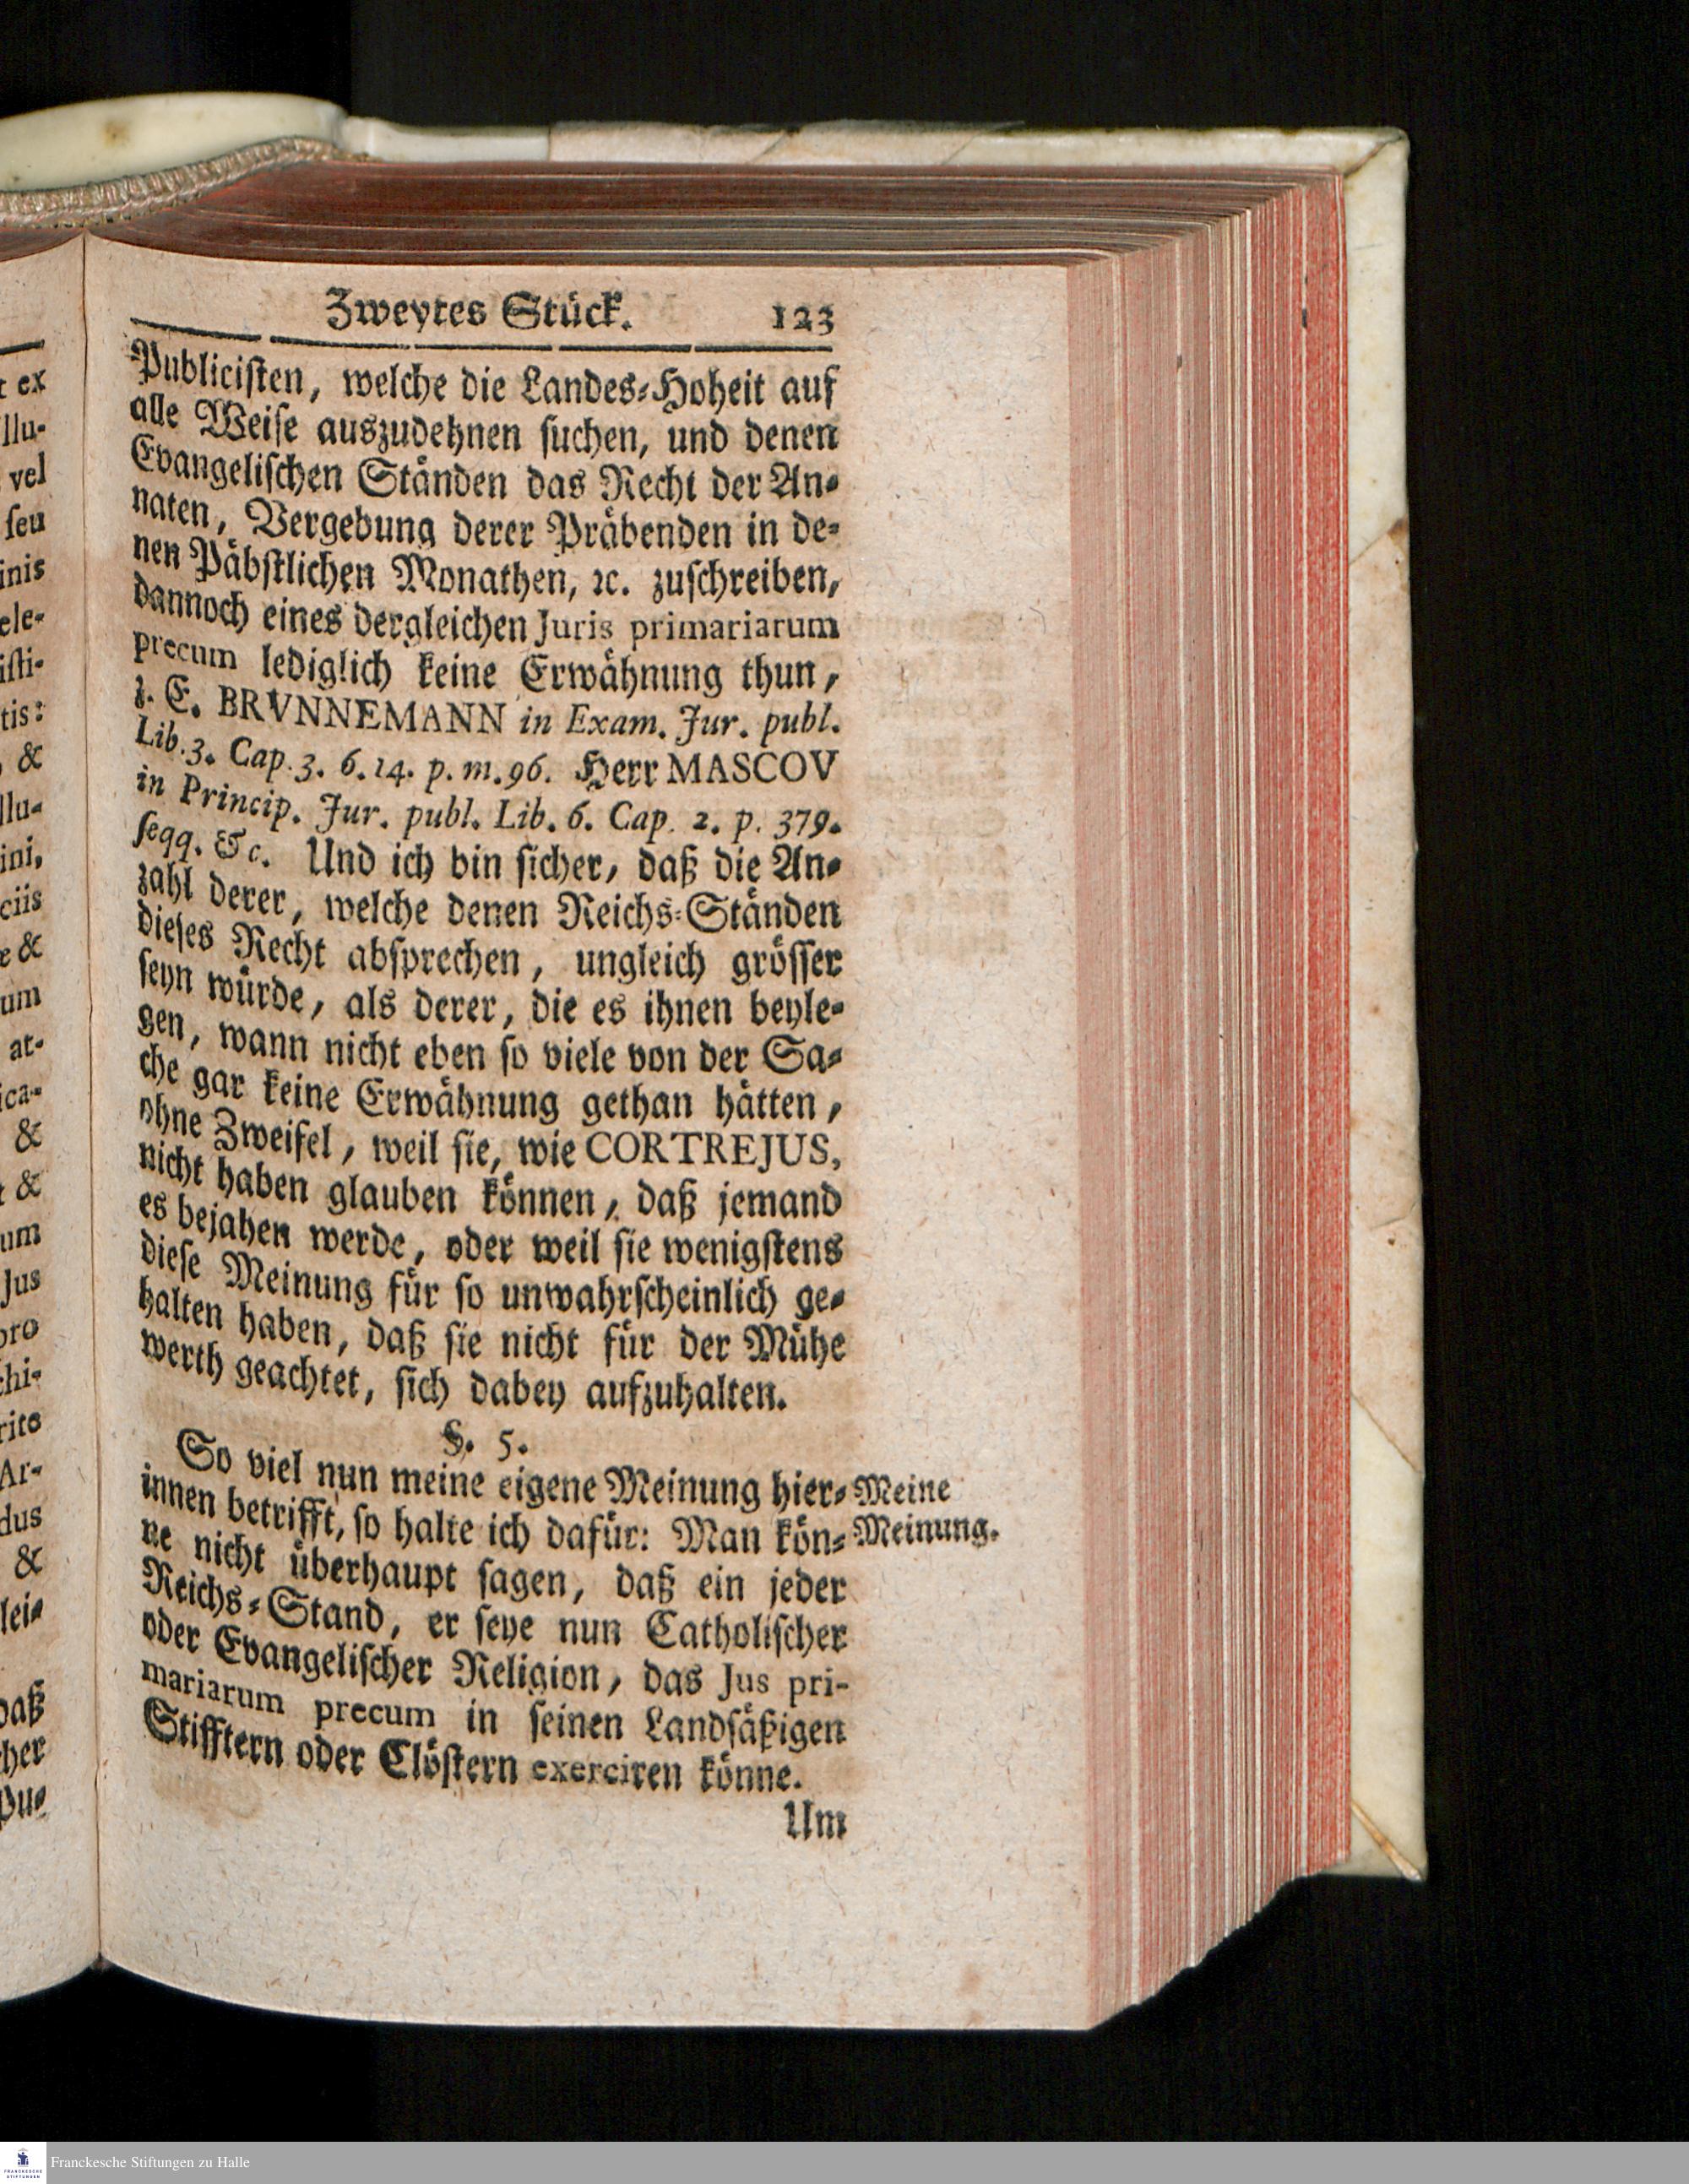 Zweytes Stück. 123
Publicisten, welche die Landes-Hoheit auf
alle Weise auszudehnen suchen, und denen
Evangelischen Ständen das Recht der An-
naten, Vergebung derer Präbenden in de-
nen Päbstlichen Monathen, ꝛc. zuschreiben,
dannoch eines dergleichen Juris primariarum
precum lediglich keine Erwähnung thun,
z. E. BRVNNEMANN in Exam. Jur. publ.
Lib. 3. Cap. 3. 6. 14. p. m. 96. Herr MASCOV
in Princip. Jur. publ. Lib. 6. Cap. 2. p. 379.
seqq. &c. Und ich bin sicher, daß die An-
zahl derer, welche denen Reichs-Ständen
dieses Recht absprechen, ungleich grösser
seyn würde, als derer, die es ihnen beyle-
gen, wann nicht eben so viele von der Sa-
che gar keine Erwähnung gethan hätten,
ohne Zweifel, weil sie, wie CORTREJUS,
nicht haben glauben können, daß jemand
es bejahen werde, oder weil sie wenigstens
diese Meinung für so unwahrscheinlich ge-
halten haben, daß sie nicht für der Mühe
werth geachtet, sich dabey aufzuhalten.
§. 5.
So viel nun meine eigene Meinung hier-
innen betrifft, so halte ich dafür: Man kön-
ne nicht überhaupt sagen, daß ein jeder
Reichs-Stand, er seye nun Catholischer
oder Evangelischer Religion, das Jus pri-
mariarum precum in seinen Landsäßigen
Stifftern oder Clöstern exerciren könne.
Um
Meine
Meinung.
t ex
llu-
vel
seu
inis
ele-
isti-
tis:
&
llu-
ini,
ciis
&
um
at-
ica-
&
&
um
Jus
pro
chi-
rito
Ar-
dus
&
lei-
daß
her
Pu-
Franckesche Stiftungen zu Halle
FRANCKESCHE
STIFTUNGEN